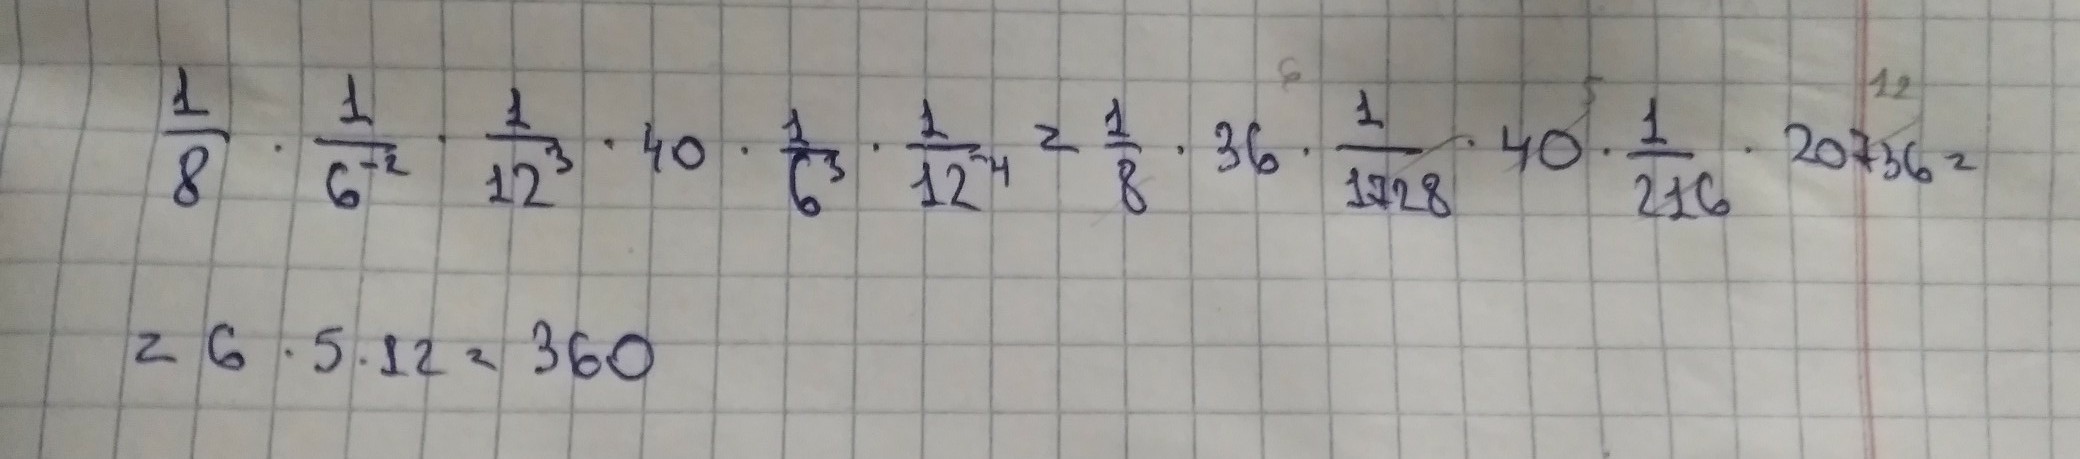 1/8 · 1/6⁻² · 1/12³ · 40 · 1/6³ · 1/12⁻⁴ = 1/8 · 36 6 · 1/1728 · 40 5 · 1/216 · 20736 12 =
= 6 · 5 · 12 = 360